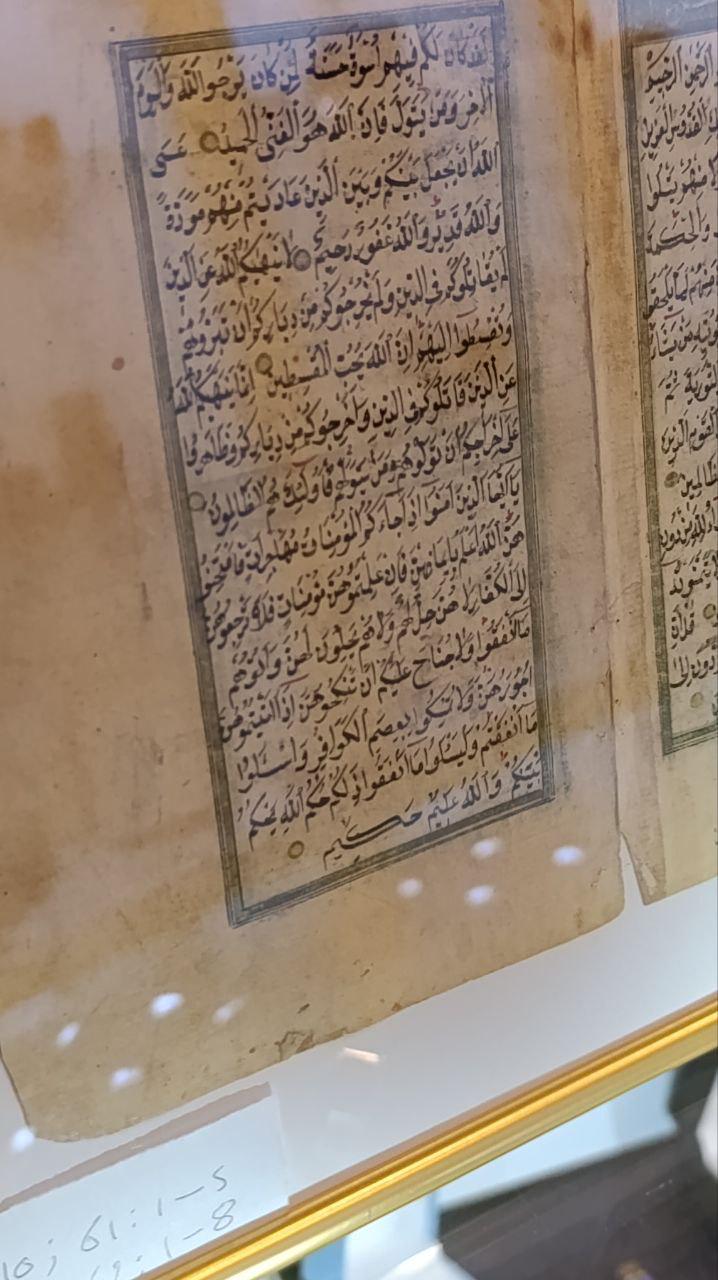 لَقَدْ كَانَ لَكُمْ فِيهِمْ أُسْوَةٌ حَسَنَةٌ لِمَنْ كَانَ يَرْجُو اللَّهَ وَالْيَوْمَ
الْآخِرَ وَمَنْ يَتَوَلَّ فَإِنَّ اللَّهَ هُوَ الْغَنِيُّ الْحَمِيدُ عَسَى
اللَّهُ أَنْ يَجْعَلَ بَيْنَكُمْ وَبَيْنَ الَّذِينَ عَادَيْتُمْ مِنْهُمْ مَوَدَّةً
وَاللَّهُ قَدِيرٌ وَاللَّهُ غَفُورٌ رَحِيمٌ لَا يَنْهَيكُمُ اللَّهُ عَنِ الَّذِينَ
لَمْ يُقَاتِلُوكُمْ فِي الدِّينِ وَلَمْ يُخْرِجُوكُمْ مِنْ دِيَارِكُمْ أَنْ تَبَرُّوهُمْ
وَتُقْسِطُوا إِلَيْهِمْ إِنَّ اللَّهَ يُحِبُّ الْمُقْسِطِينَ إِنَّمَا يَنْهَيكُمُ اللَّهُ
عَنِ الَّذِينَ قَاتَلُوكُمْ فِي الدِّينِ وَأَخْرَجُوكُمْ مِنْ دِيَارِكُمْ وَظَاهَرُوا
عَلَى إِخْرَاجِكُمْ أَنْ تَوَلَّوْهُمْ وَمَنْ يَتَوَلَّهُمْ فَأُولَئِكَ هُمُ الظَّالِمُونَ
يَا أَيُّهَا الَّذِينَ آمَنُوا إِذَا جَاءَكُمُ الْمُؤْمِنَاتُ مُهَاجِرَاتٍ فَامْتَحِنُو
هُنَّ اللَّهُ أَعْلَمُ بِإِيمَانِهِنَّ فَإِنْ عَلِمْتُمُوهُنَّ مُؤْمِنَاتٍ فَلَا تَرْجِعُوهُنَّ
إِلَى الْكُفَّارِ لَا هُنَّ حِلٌّ لَهُمْ وَلَا هُمْ يَحِلُّونَ لَهُنَّ وَآتُوهُمْ
مَا أَنْفَقُوا وَلَا جُنَاحَ عَلَيْكُمْ أَنْ تَنْكِحُوهُنَّ إِذَا آتَيْتُمُوهُنَّ
أُجُورَهُنَّ وَلَا تُمْسِكُوا بِعِصَمِ الْكَوَافِرِ وَاسْئَلُوا
مَا أَنْفَقْتُمْ وَلْيَسْئَلُوا مَا أَنْفَقُوا ذَلِكُمْ حُكْمُ اللَّهِ يَحْكُمُ
بَيْنَكُمْ وَاللَّهُ عَلِيمٌ حَكِيمٌ
الرَّحْمَنِ الرَّحِيمِ
الْقُدُّوسِ الْعَزِيزِ
مِنْهُمْ يَتْلُوا
وَالْحِكْمَةَ
مِنْهُمْ لَمَّا يَلْحَقُوا
يُؤْتِيهِ مَنْ يَشَاءُ
التَّوْرَيةَ ثُمَّ
الْقَوْمِ الَّذِينَ
لِلَّهِ مِنْ دُونِ
10; 61:1-5
1-8